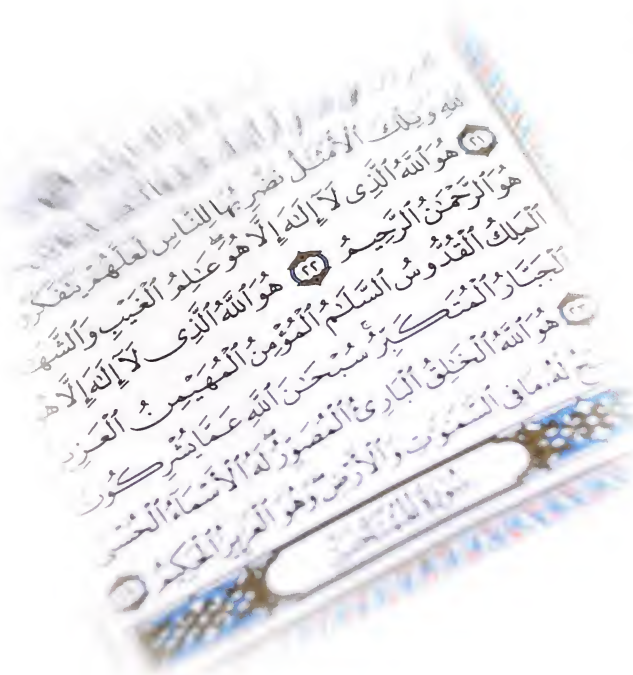 للَّهِ وَتِلْكَ ٱلْأَمْثَٰلُ نَضْرِبُهَا لِلنَّاسِ لَعَلَّهُمْ يَتَفَكَّرُ
٢١ هُوَ ٱللَّهُ ٱلَّذِى لَآ إِلَٰهَ إِلَّا هُوَۖ عَٰلِمُ ٱلْغَيْبِ وَٱلشَّهَ
هُوَ ٱلرَّحْمَٰنُ ٱلرَّحِيمُ ٢٢ هُوَ ٱللَّهُ ٱلَّذِى لَآ إِلَٰهَ إِلَّا هُ
ٱلْمَلِكُ ٱلْقُدُّوسُ ٱلسَّلَٰمُ ٱلْمُؤْمِنُ ٱلْمُهَيْمِنُ ٱلْعَزِي
ٱلْجَبَّارُ ٱلْمُتَكَبِّرُۚ سُبْحَٰنَ ٱللَّهِ عَمَّا يُشْرِكُونَ
٢٣ هُوَ ٱللَّهُ ٱلْخَٰلِقُ ٱلْبَارِئُ ٱلْمُصَوِّرُۖ لَهُ ٱلْأَسْمَآءُ ٱلْحُسْنَى
حُ لَهُۥ مَا فِى ٱلسَّمَٰوَٰتِ وَٱلْأَرْضِۖ وَهُوَ ٱلْعَزِيزُ ٱلْحَكِيمُ
سُورَةُ